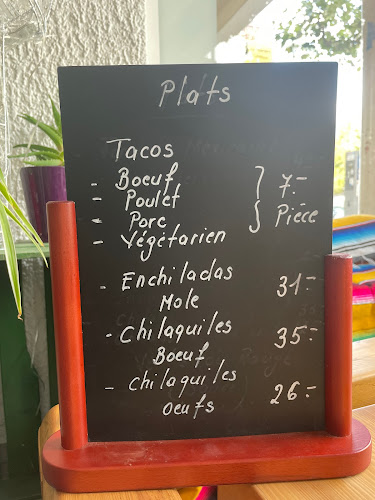 Plats
Tacos
- Boeuf
- Poulet 7.-
- Porc Pièce
- Végétarien
- Enchiladas 31.-
Mole
- Chilaquiles 35.-
Boeuf
- Chilaquiles
oeufs 26.-